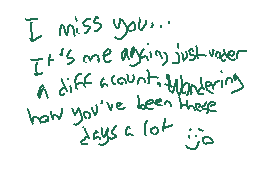 I miss you...
It's me again, just under
a diff acount. Wondering
how you've been these
days a lot